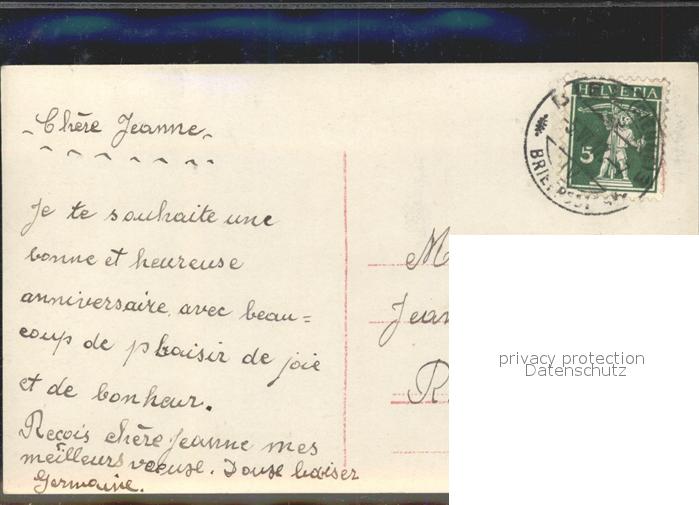 Chère Jeanne
Je te souhaite une
bonne et heureuse
anniversaire, avec beau=
coup de plaisir de joie
et de bonheur.
Reçois chère Jeanne mes
meilleurs voeuse. Douse baiser
Germaine.
HELVETIA
5
BRIEFPOST
M
Jean
R
privacy protection
Datenschutz